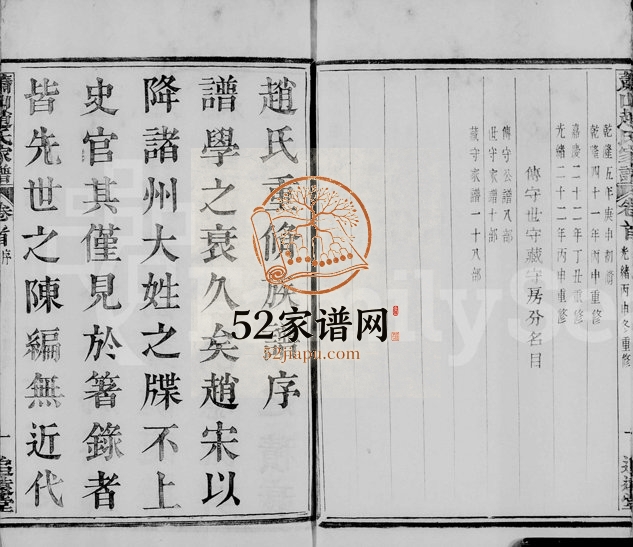 蕭山趙氏家譜 卷首 光緒丙申冬重修 一 追遠堂
乾隆五年庚申初創
乾隆四十一年丙申重修
嘉慶二十二年丁丑重修
光緒二十二年丙申重修
傳守世守藏守房分名目
傳守公譜八部
世守家譜十部
藏守家譜一十八部
趙氏重脩族譜序
譜學之衰久矣趙宋以
降諸州大姓之牒不上
史官其僅見於箸錄者
皆先世之陳編無近代
蕭山趙氏家譜 卷首 序 一 追遠堂
52家谱网
52jiapu.com